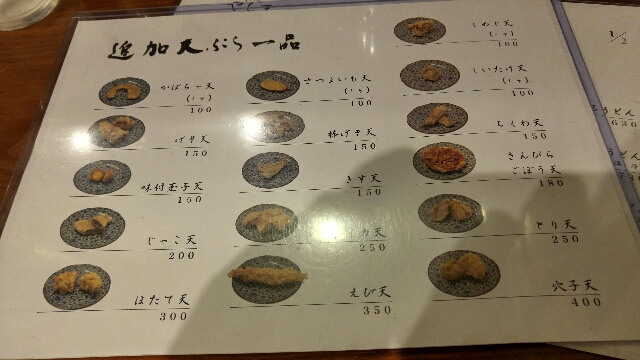 追加天ぷら一品
かぼちゃ天
(1ヶ)
100
げそ天
150
味付玉子天
150
じゃこ天
200
ほたて天
300
さつまいも天
(1ヶ)
100
揚げ天
150
きす天
150
250
えび天
350
しめじ天
(1ヶ)
100
しいたけ天
(1ヶ)
100
ちくわ天
150
きんぴら
ごぼう天
180
とり天
250
穴子天
400
うどん
630